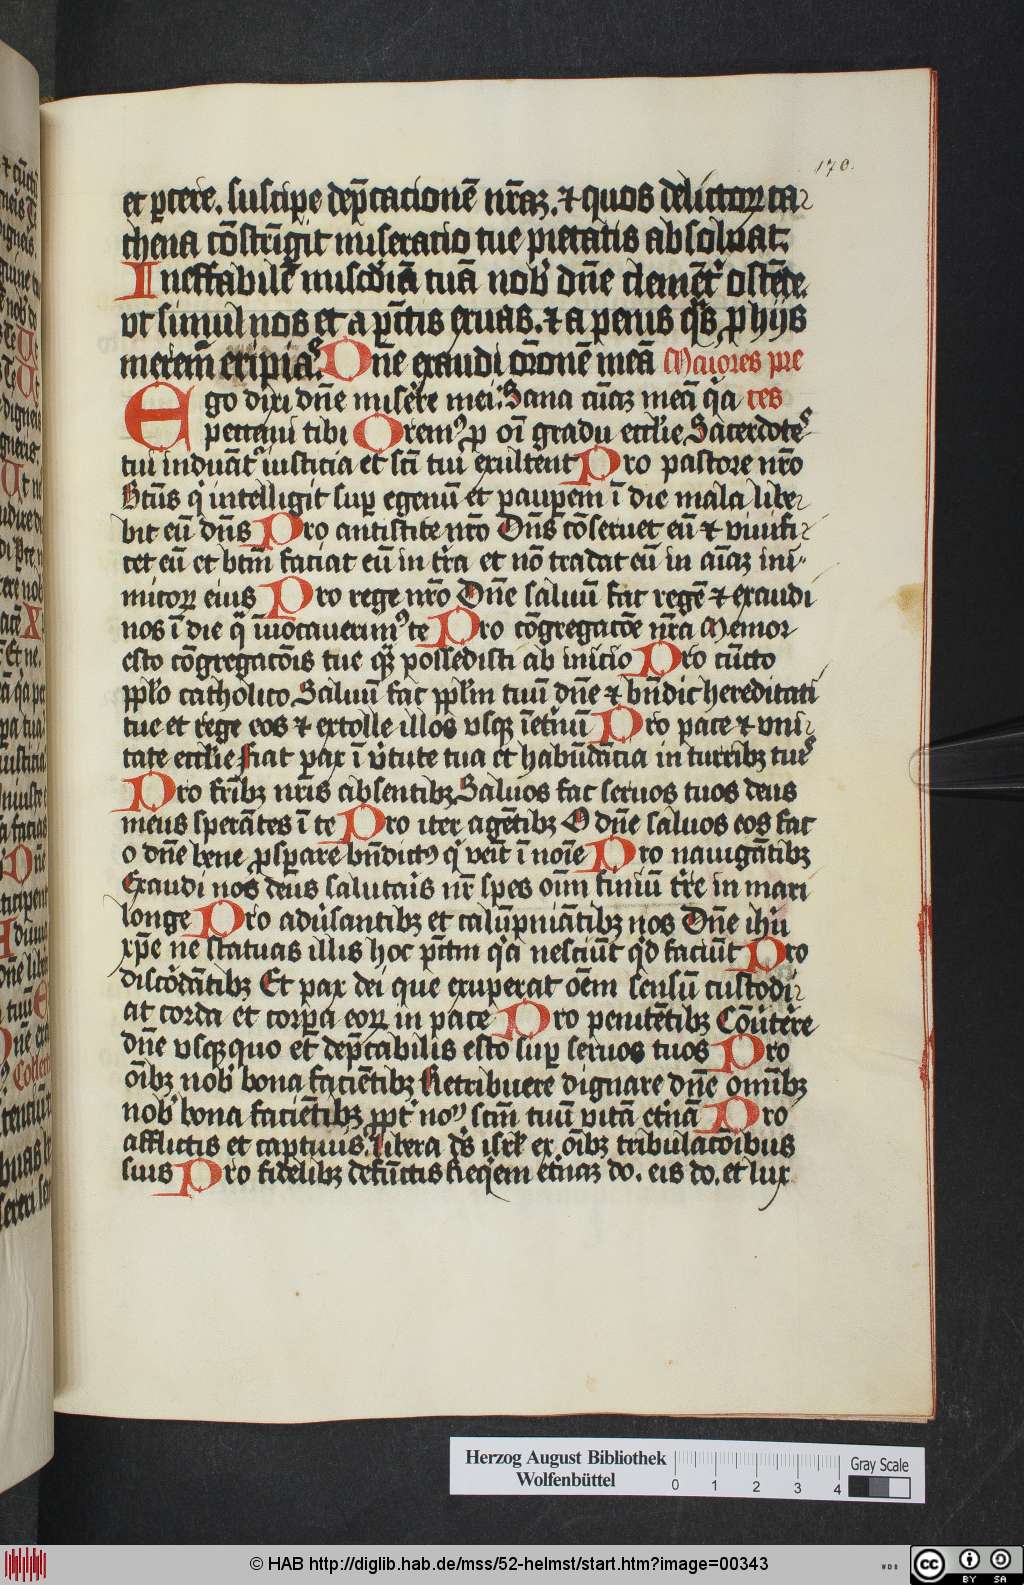 170.
et ꝑcere. suscipe dep̄cacionē nr̄aꝫ. ⁊ quos delictoꝝ ca
thena cōstrīgit miseratio tue pietatis absoluat.
Ineffabilē miscd̓iā tuā nob̓ dn̄e clemēt̓ ostēde.
vt simul nos et a pctīs exuas. ⁊ a penis qͣs ꝓ hijs
merem̄ eripias. Dn̄e exaudi or̄onē meā Maiores pre
Ego dixi dn̄e miserere mei. Sana aīaꝫ meā qͥa ces
peccaui tibi Oremꝰ ꝓ oī gradu eccl̄ie Sacerdotes
tui induāt̓ iusticia et scī tui exultent Pro pastore nr̄o
Btūs qͥ intelligit suꝑ egenū et pauꝑem ī die mala libe
bit eū dn̄s Pro antistite nr̄o Dn̄s cōseruet eū ⁊ viuifi
cet eū et btm̄ faciat eū in tr̄a et nō tradat eū in aīaꝫ ini
micoꝝ eius Pro rege nr̄o Dn̄e saluū fac regē ⁊ exaudi
nos ī die qͣ īuocauerimꝰ te Pro cōgregacōe nr̄a Memor
esto cōgregacōis tue qͣꝫ possedisti ab inicio Pro cūcto
ppl̄o catholico Saluū fac ppl̄m tuū dn̄e ⁊ bn̄dic hereditati
tue et rege eos ⁊ extolle illos vsqꝫ īet̓nū Pro pace ⁊ vni
tate eccl̄ie Fiat pax ī v̓tute tua et habūdācia in turribꝫ tuis
Pro fr̄ibꝫ nr̄is absentibꝫ Saluos fac seruos tuos deus
meus sperātes ī te Pro iter agētibꝫ O dn̄e saluos eos fac
o dn̄e bene ꝓsꝑare bn̄dictꝰ qͥ venit ī noīe Pro nauigātibꝫ
Exaudi nos deus salutaris nr̄ spes oīm finiū tr̄e in mari
longe Pro aduersantibꝫ et calūpniātibꝫ nos Dn̄e ihū
xp̄e ne statuas illis hoc pctm̄ qͥa nesciūt qͥd faciūt Pro
discordātibꝫ Et pax dei que exuperat oēm sensū custodi
at corda et corꝑa eoꝝ in pace Pro penitētibꝫ Cōuertere
dn̄e vsqꝫquo et dep̄cabilis esto suꝑ seruos tuos Pro
oībꝫ nob̓ bona faciētibꝫ Retribuere dignare dn̄e omībꝫ
nob̓ bona faciētibꝫ ꝓpt̓ noꝰ scm̄ tuū vitā et̓nā Pro
afflictis et captiuis Libera ds̄ isrl̄ ex oībꝫ tribulacōibus
suis Pro fidelibꝫ defūctis Reqͥem et̓naꝫ do. eis do. et lux
Herzog August Bibliothek
Wolfenbüttel
0 1 2 3 4
Gray Scale
© HAB http://diglib.hab.de/mss/52-helmst/start.htm?image=00343
WDB
CC BY SA